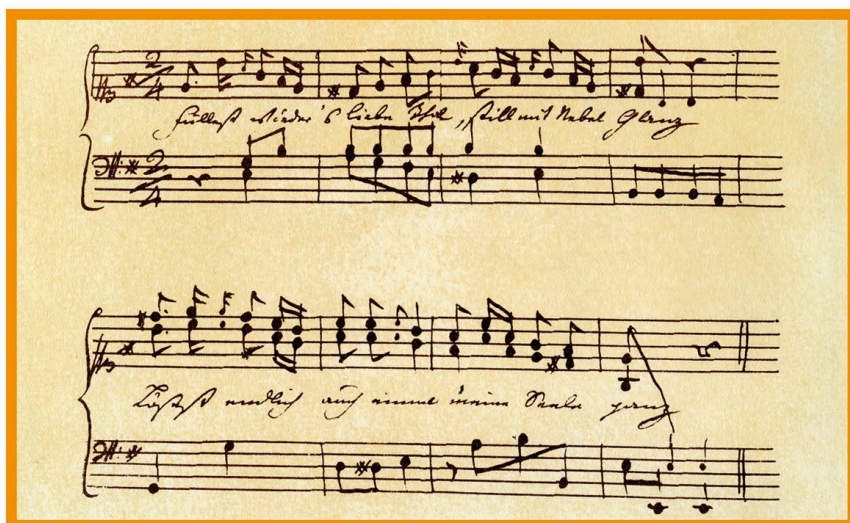 2 4
Füllest wieder's liebe Thal, still mit Nebel Glanz
2 4
Lösest endlich auch einmal meine Seele ganz